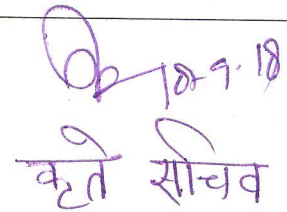 18-9-18
कृते सचिव